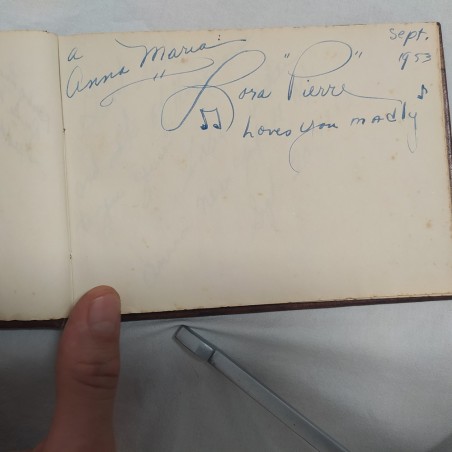 a
Anna Maria:
Sept.
1953
Lora "Pierre"
Loves you madly